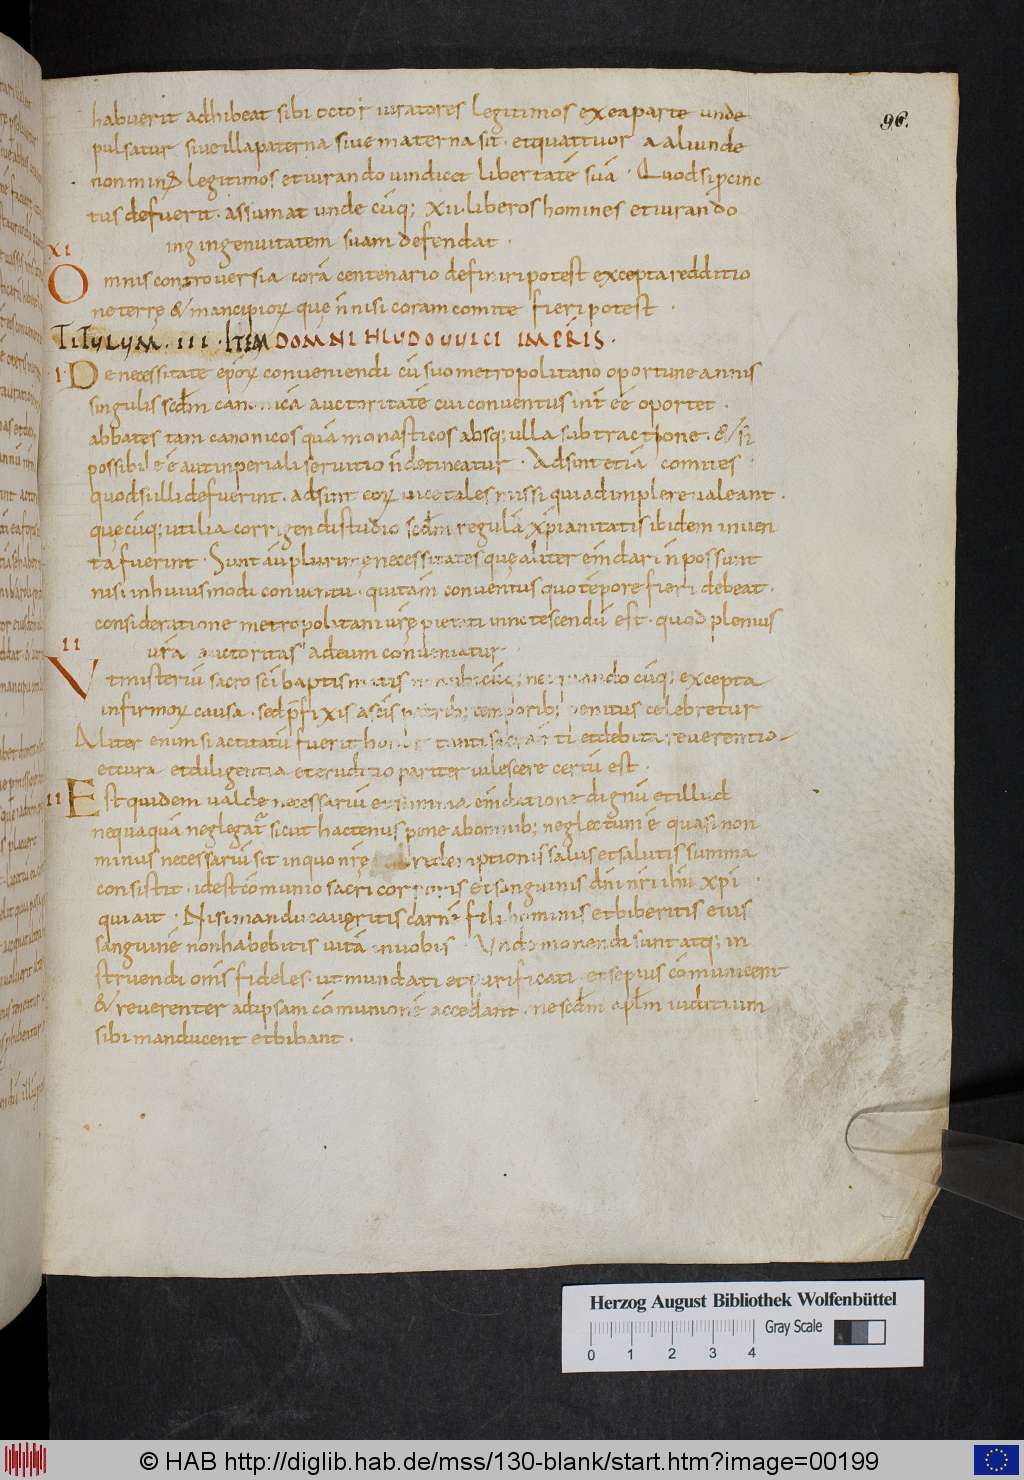 96.
habuerit adhibeat sibi octo iuratores legitimos ex ea parte unde
pulsatur siue illa paterna siue materna sit · et quattuor aliunde
non min⁹ legitimos et iurando uindicet libertatē suā · Quod si ꝓcinc
tus defuerit · assumat undecūq; XII · liberos homines et iurando
ingenuitatem suam defendat ·
XI
Omnis controuersia corā centenario definiri potest excepta redditio
ne terrę & mancipioꝝ quę ñ nisi coram comite fieri potest ·
TITULUM · III · ITEM DOMNI HLUDOUUICI IMPERIS ·
· I · De necessitate epōꝝ conueniendi cū suo metropolitano oportune annis
singulis scdm canonicā auctoritatē cui conuentus int̄ēē oportet ·
abbates tam canonicos quā monasticos absq; ulla subtractione · & si
possibile ē aut inperiali seruitio ñ detineatur · Adsint etiā comites ·
quod si illi defuerint · adsint eoꝝ uice tales missi qui adimplere ualeant ·
quęcūq; utilia corrigendi studio scdm regulā xp̄ianitatis ibidem inuen
ta fuerint · Sunt aū plurimę necessitates quę aliter emdari ñ possunt
nisi in huiusmodi conuentu · qui tam̄ conuentus quo tēpore fieri debeat ·
consideratione metropolitani uřę pietati innotescendū est · quod plenius
uřa auctoritas ad eum conueniatur
II
Ut misteriū sacrosci baptismatis
infirmoꝝ causa · sed p̄fixis a scis patrib; temporib; penitus celebretur
Aliter enim si actitatū fuerit honor tanti et debita reuerentia
et cura et diligentia et eruditio pariter uilescere certū est ·
II Est quidem ualde necessariū et summa em̄datione dignū et illud
nequaquā neglegat̄ sicut hactenus pene ab omnib; neglectum ē quasi non
minus necessariū sit in quo nřę redemptionis salus et salutis summa
consistit · id est cōmunio sacri corporis et sanguinis dn̄i nr̄i ihū xp̄i ·
qui ait · Nisi manducaueritis carnē filii hominis et biberitis eius
sanguinē non habebitis uitā in uobis · Unde monendi sunt atq; in
struendi om̄s fideles · ut mundati et purificati · et sepius cōmunicent
& reuerenter ad ipsam cōmunionē accedant · ne scdm apl̄m iuditium
sibi manducent et bibant ·
Herzog August Bibliothek Wolfenbüttel
Gray Scale
0 1 2 3 4
© HAB http://diglib.hab.de/mss/130-blank/start.htm?image=00199